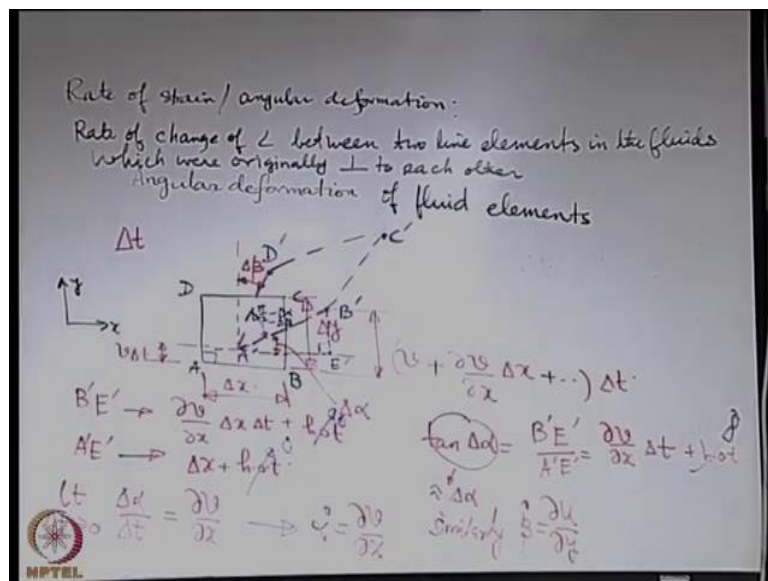 Rate of strain / angular deformation:
Rate of change of ∠ between two line elements in the fluids
which were originally ⊥ to each other
Angular deformation of fluid elements
Δt
D'
C'
Δβ
y
x
D
C
B'
Δy
A'
E'
vΔt
A
B
Δx
Δα
(v + ∂v/∂x Δx + ...) Δt
B'E' → ∂v/∂x Δx Δt + h.o.t
A'E' → Δx + h.o.t
tan Δα = B'E'/A'E' = ∂v/∂x Δt + h.o.t
≈ Δα
Lt Δα/Δt = ∂v/∂x → α̇ = ∂v/∂x
Similarly β̇ = ∂u/∂y
NPTEL